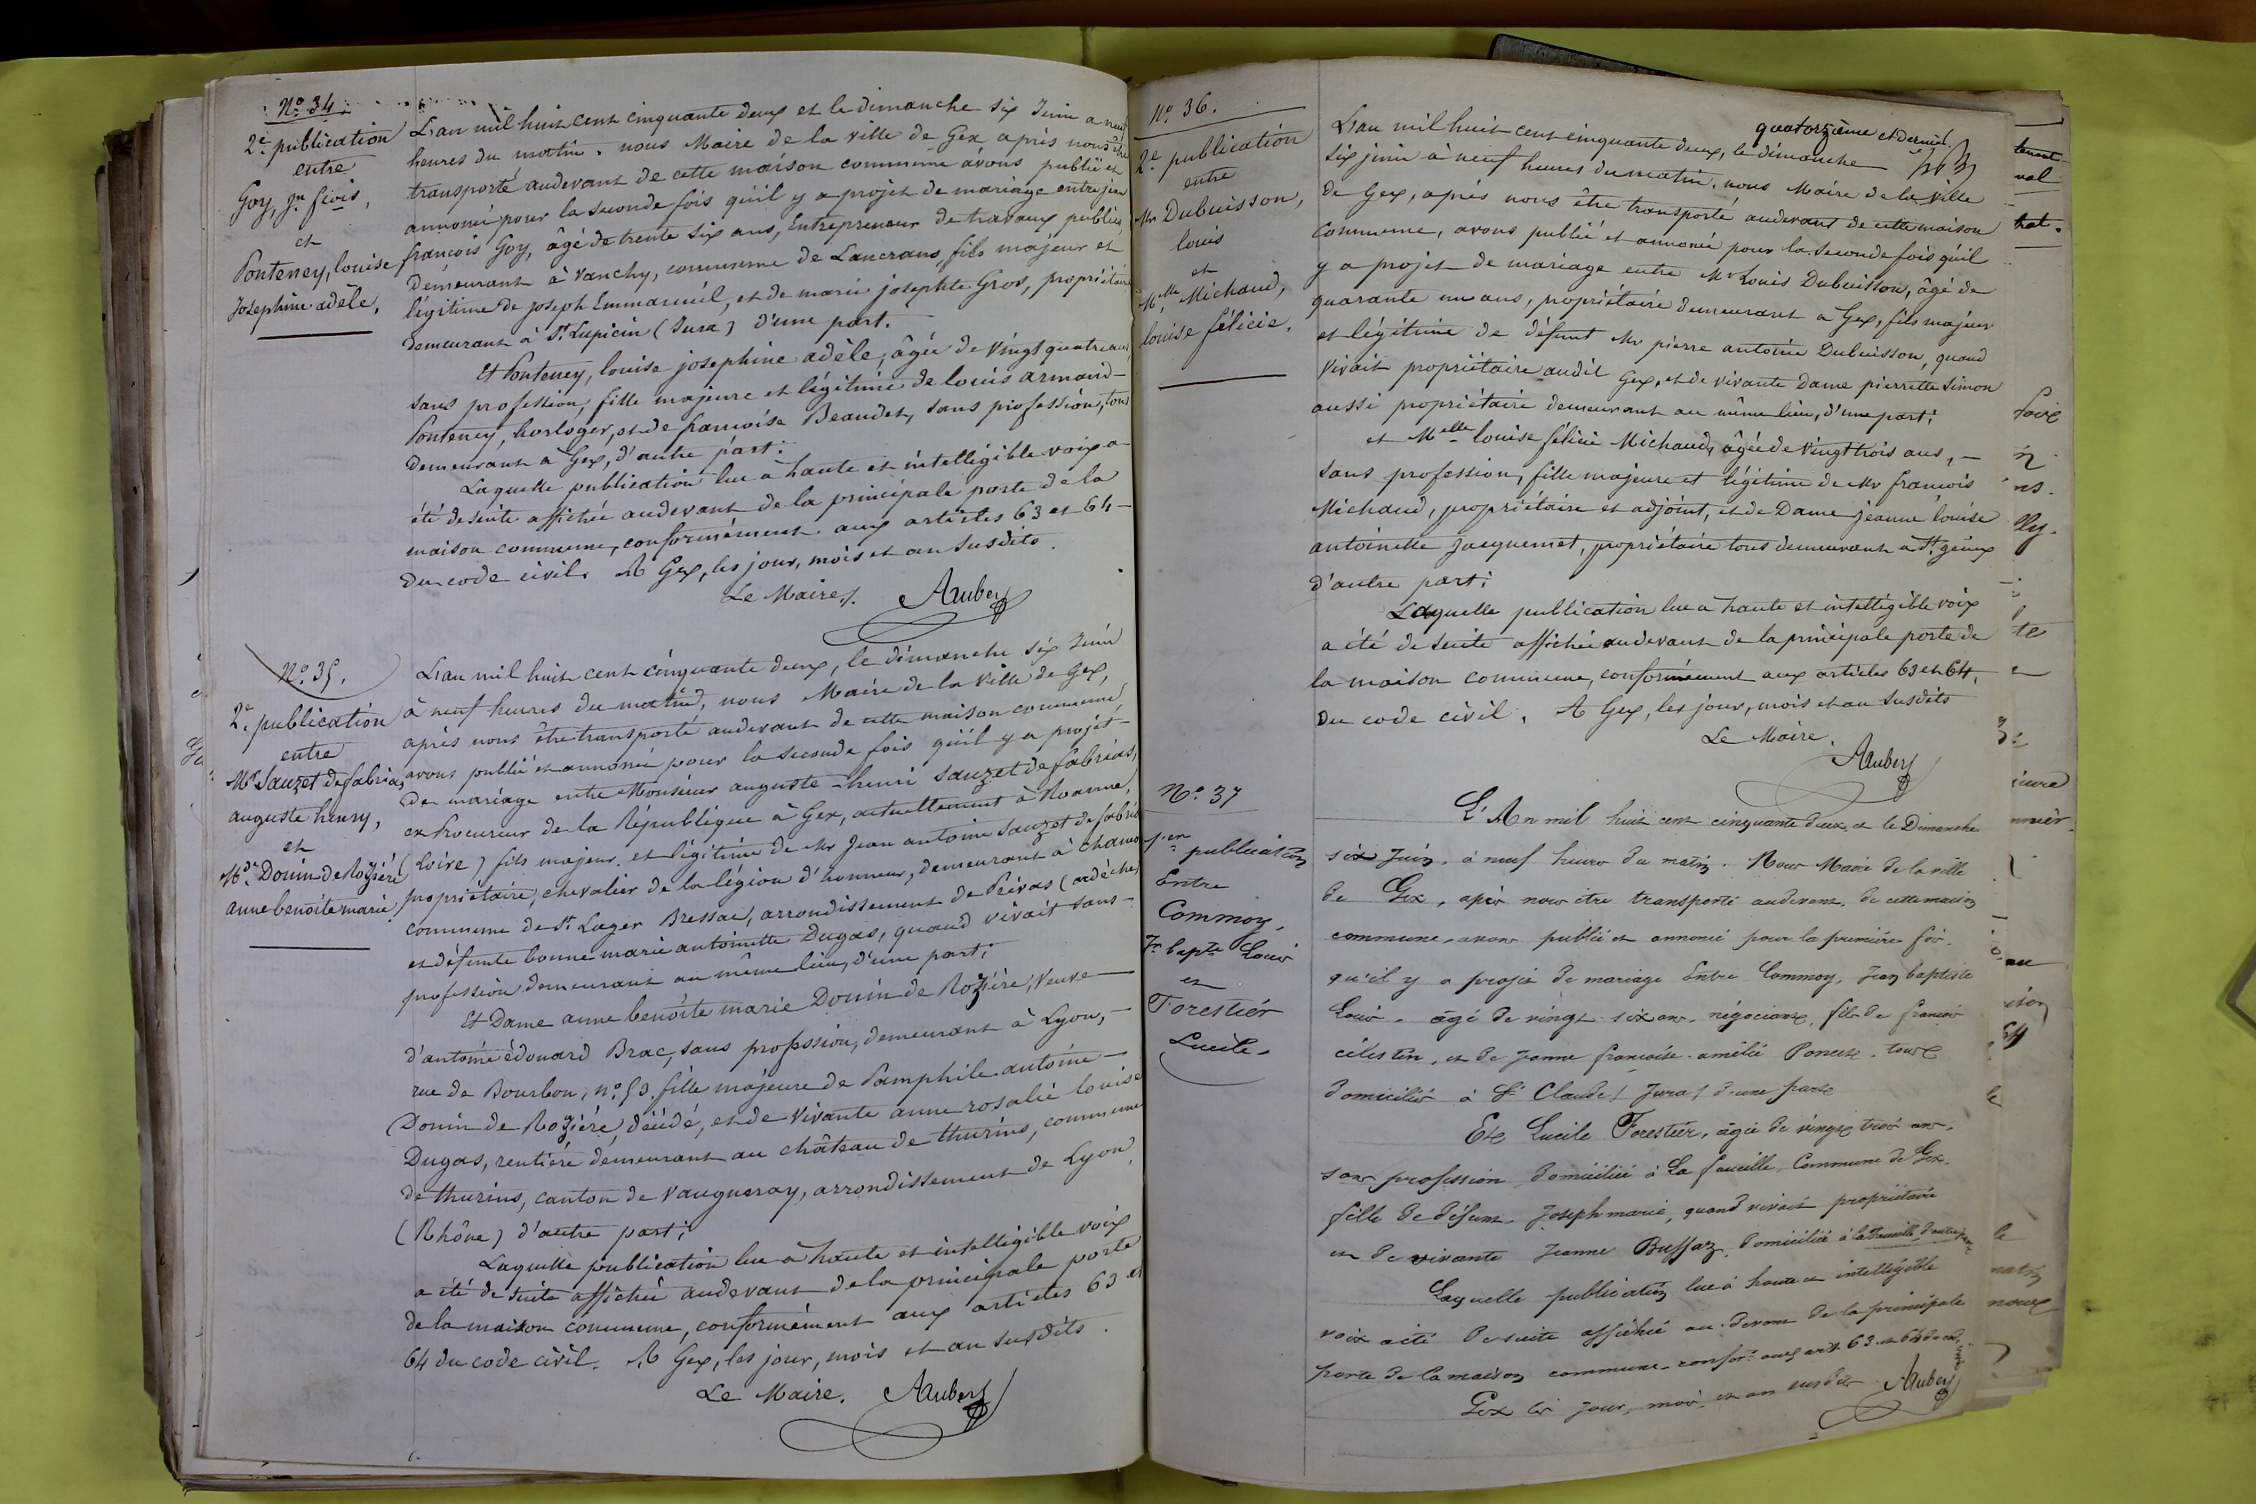 N.º 34.
2.e publication
entre
Goy, Jn. fçois,
et
Ponteney, louise
Josephine adèle,
L'an mil huit cent cinquante deux et le dimanche six Juin a neuf
heures du matin. nous Maire de la ville de Gex après nous être
transporté audevant de cette maison commune avons publié et
annoncé pour la seconde fois qu'il y a projet de mariage entre jean
françois Goy, âgé de trente six ans, Entrepreneur de travaux publics,
demeurant à Vanchy, commune de Lancrans, fils majeur et
légitime de joseph Emmanuël, et de marie josephte Gros, propriétaires
demeurant à St. Lupicin (Jura) d'une part.
Et Ponteney, louise josephine adèle, âgée de vingt quatre ans,
sans profession, fille majeure et légitime de louis armand
Ponteney, horloger, et de françoise Beaudet, sans profession, tous
demeurant à Gex, d'autre part.
Laquelle publication lue à haute et intelligible voix a
été de suite affichée audevant de la principale porte de la
maison commune, conformément aux articles 63 et 64
du code civil. A Gex, les jour, mois et an susdits.
Le Maire. Aubert
N.º 35.
2.e publication
entre
Mr. Sauzet de fabrias
auguste henry,
et
Mde. Donin de Rozière
anne benoite marie
L'an mil huit cent cinquante deux, le dimanche six Juin
à neuf heures du matin, nous Maire de la ville de Gex,
après nous être transporté audevant de cette maison commune,
avons publié et annoncé pour la seconde fois qu'il y a projet
de mariage entre Monsieur auguste-henri Sauzet de fabrias,
ex Procureur de la République à Gex, actuellement à Roanne,
(Loire) fils majeur et légitime de Mr Jean antoine Sauzet de fabrias
propriétaire, chevalier de la légion d'honneur, demeurant à
commune de St. Lager Bressac, arrondissement de Privas (ardèche)
et défunte bonne marie antoinette Dugas, quand vivait sans
profession demeurant au même lieu, d'une part;
Et Dame anne benoîte marie Donin de Rozière, veuve
d'antoine édouard Brac, sans profession, demeurant à Lyon,
rue de Bourbon, n.º 53, fille majeure de Pamphile antoine
Donin de Rozière, décédé, et de vivante anne rosalie louise
Dugas, rentière demeurant au château de thurins, commune
de thurins, canton de Vaugneray, arrondissement de Lyon
(Rhône) d'autre part;
Laquelle publication lue à haute et intelligible voix
a été de suite affichée audevant de la principale porte
de la maison commune, conformément aux articles 63 et
64 du code civil. A Gex, les jour, mois et an susdits.
Le Maire. Aubert
N.º 36.
2.e publication
entre
Mr Dubuisson,
louis
et
Melle Michaud,
louise félicie.
quatorzième et dernier
L'an mil huit cent cinquante deux, le dimanche
six juin à neuf heures du matin. nous Maire de la ville
de Gex, après nous être transporté audevant de cette maison
commune, avons publié et annoncé pour la seconde fois qu'il
y a projet de mariage entre Mr Louis Dubuisson, âgé de
quarante un ans, propriétaire demeurant a Gex, fils majeur
et légitime de défunt Mr pierre antoine Dubuisson, quand
vivait propriétaire audit Gex, et de vivante Dame pierrette Simon
aussi propriétaire demeurant au même lieu, d'une part;
et Melle louise félicie Michaud, âgée de vingt trois ans,
sans profession, fille majeure et légitime de Mr françois
Michaud, propriétaire et adjoint, et de Dame jeanne louise
antoinette Jacquemet, propriétaire tous demeurant à St. genix
d'autre part;
Laquelle publication lue à haute et intelligible voix
a été de suite affichée audevant de la principale porte de
la maison commune, conformément aux articles 63 et 64,
du code civil. A Gex, les jour, mois et an susdits
Le Maire. Aubert
N.º 37
1ere publication
Entre
Commoy,
Jn bapte Louis
et
Forestier
Lucile
L'An mil huit cent cinquante deux, et le Dimanche
six Juin, à neuf heures du matin. Nous Maire de la ville
de Gex, après nous être transporté audevant de cette maison
commune, avons publié et annoncé pour la première fois
qu'il y a projet de mariage Entre Commoy, Jean baptiste
Louis, âgé de vingt six ans, négociant, fils de françois
célestin, et de Jeanne françoise amélie Poncet, tous
domiciliés à St Claude (Jura) d'une part
Et Lucile Forestier, âgée de vingt trois ans,
sans profession domiciliée à La faucille, Commune de Gex,
fille de défunt Joseph marie, quand vivait propriétaire
et de vivante Jeanne Buffaz, domiciliée à la Faucille, d'autre part
Laquelle publication lue à haute et intelligible
voix a été de suite affichée au devant de la principale
porte de la maison commune, confort. aux arts. 63 et 64 du code civil
Gex les jour, mois, et an susdits Aubert